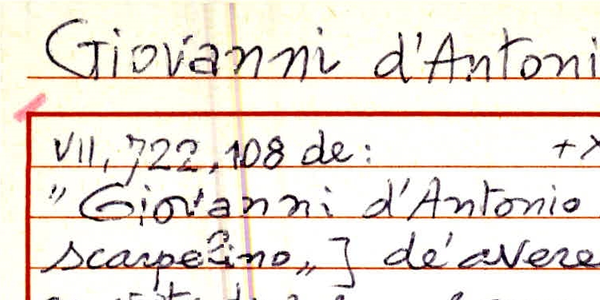 Giovanni d'Antoni
VII, 722, 108 de: +
"Giovanni d'Antonio
scarpelino„] de' avere